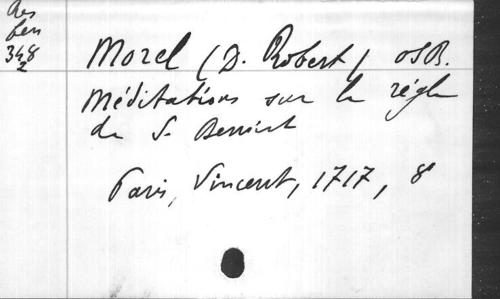 Res
ben
348
2
Morel (D. Robert) OSB.
Méditations sur la règle
de S. Benoist
Paris, Vincent, 1717, 8°